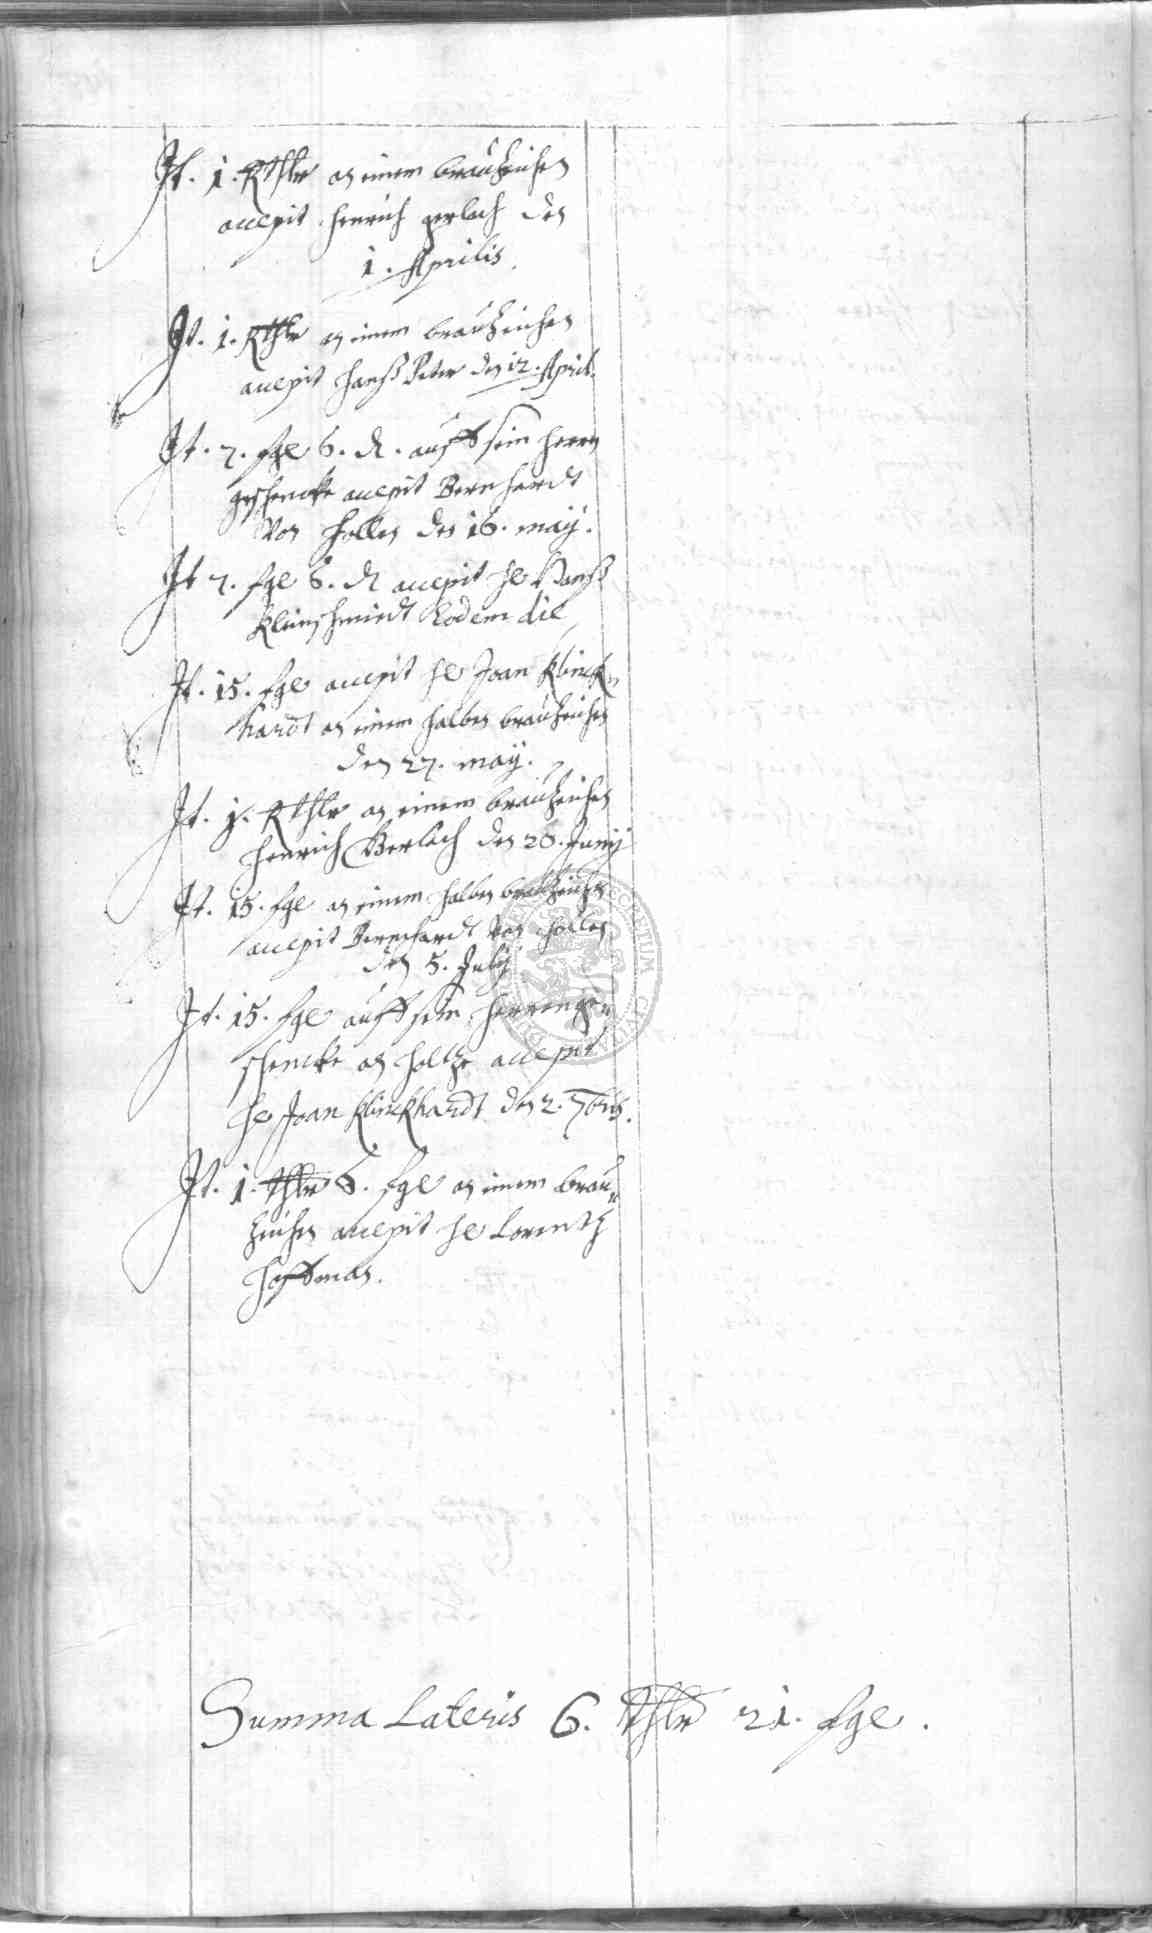 It. 1. Rthlr an einem brauzeichen
accepit Henrich gerlach den
1. Aprilis
It. 1. Rthlr an einem brauzeichen
accepit Hanß Peter den 12. April.
It. 7. sgl 6. d. auff sein herrn
geschencke accepit Bernhardt
Von Hollen den 16. maij.
It 7. sgl 6. d accepit He Hanß
Kleinschmiedt Eodem die
It. 15. sgl accepit He Joan Klinck
hardt an einem halben brauzeichen
den 27. maij.
It. 1. Rthlr an einem brauzeichen
Henrich Gerlach den 20. Junij
It. 15. sgl an einem halben brauzeichen
accepit Bernhardt Von Hollen
den 5. Julij
It. 15. sgl auff sein herrenge
schencke an holtze accepit
He Joan Klinckhardt den 2. 7bris.
It. 1. thlr 6. sgl an einem brau
zeichen accepit He Lorentz
Hoffman.
Summa Lateris 6. thlr 21. sgl.